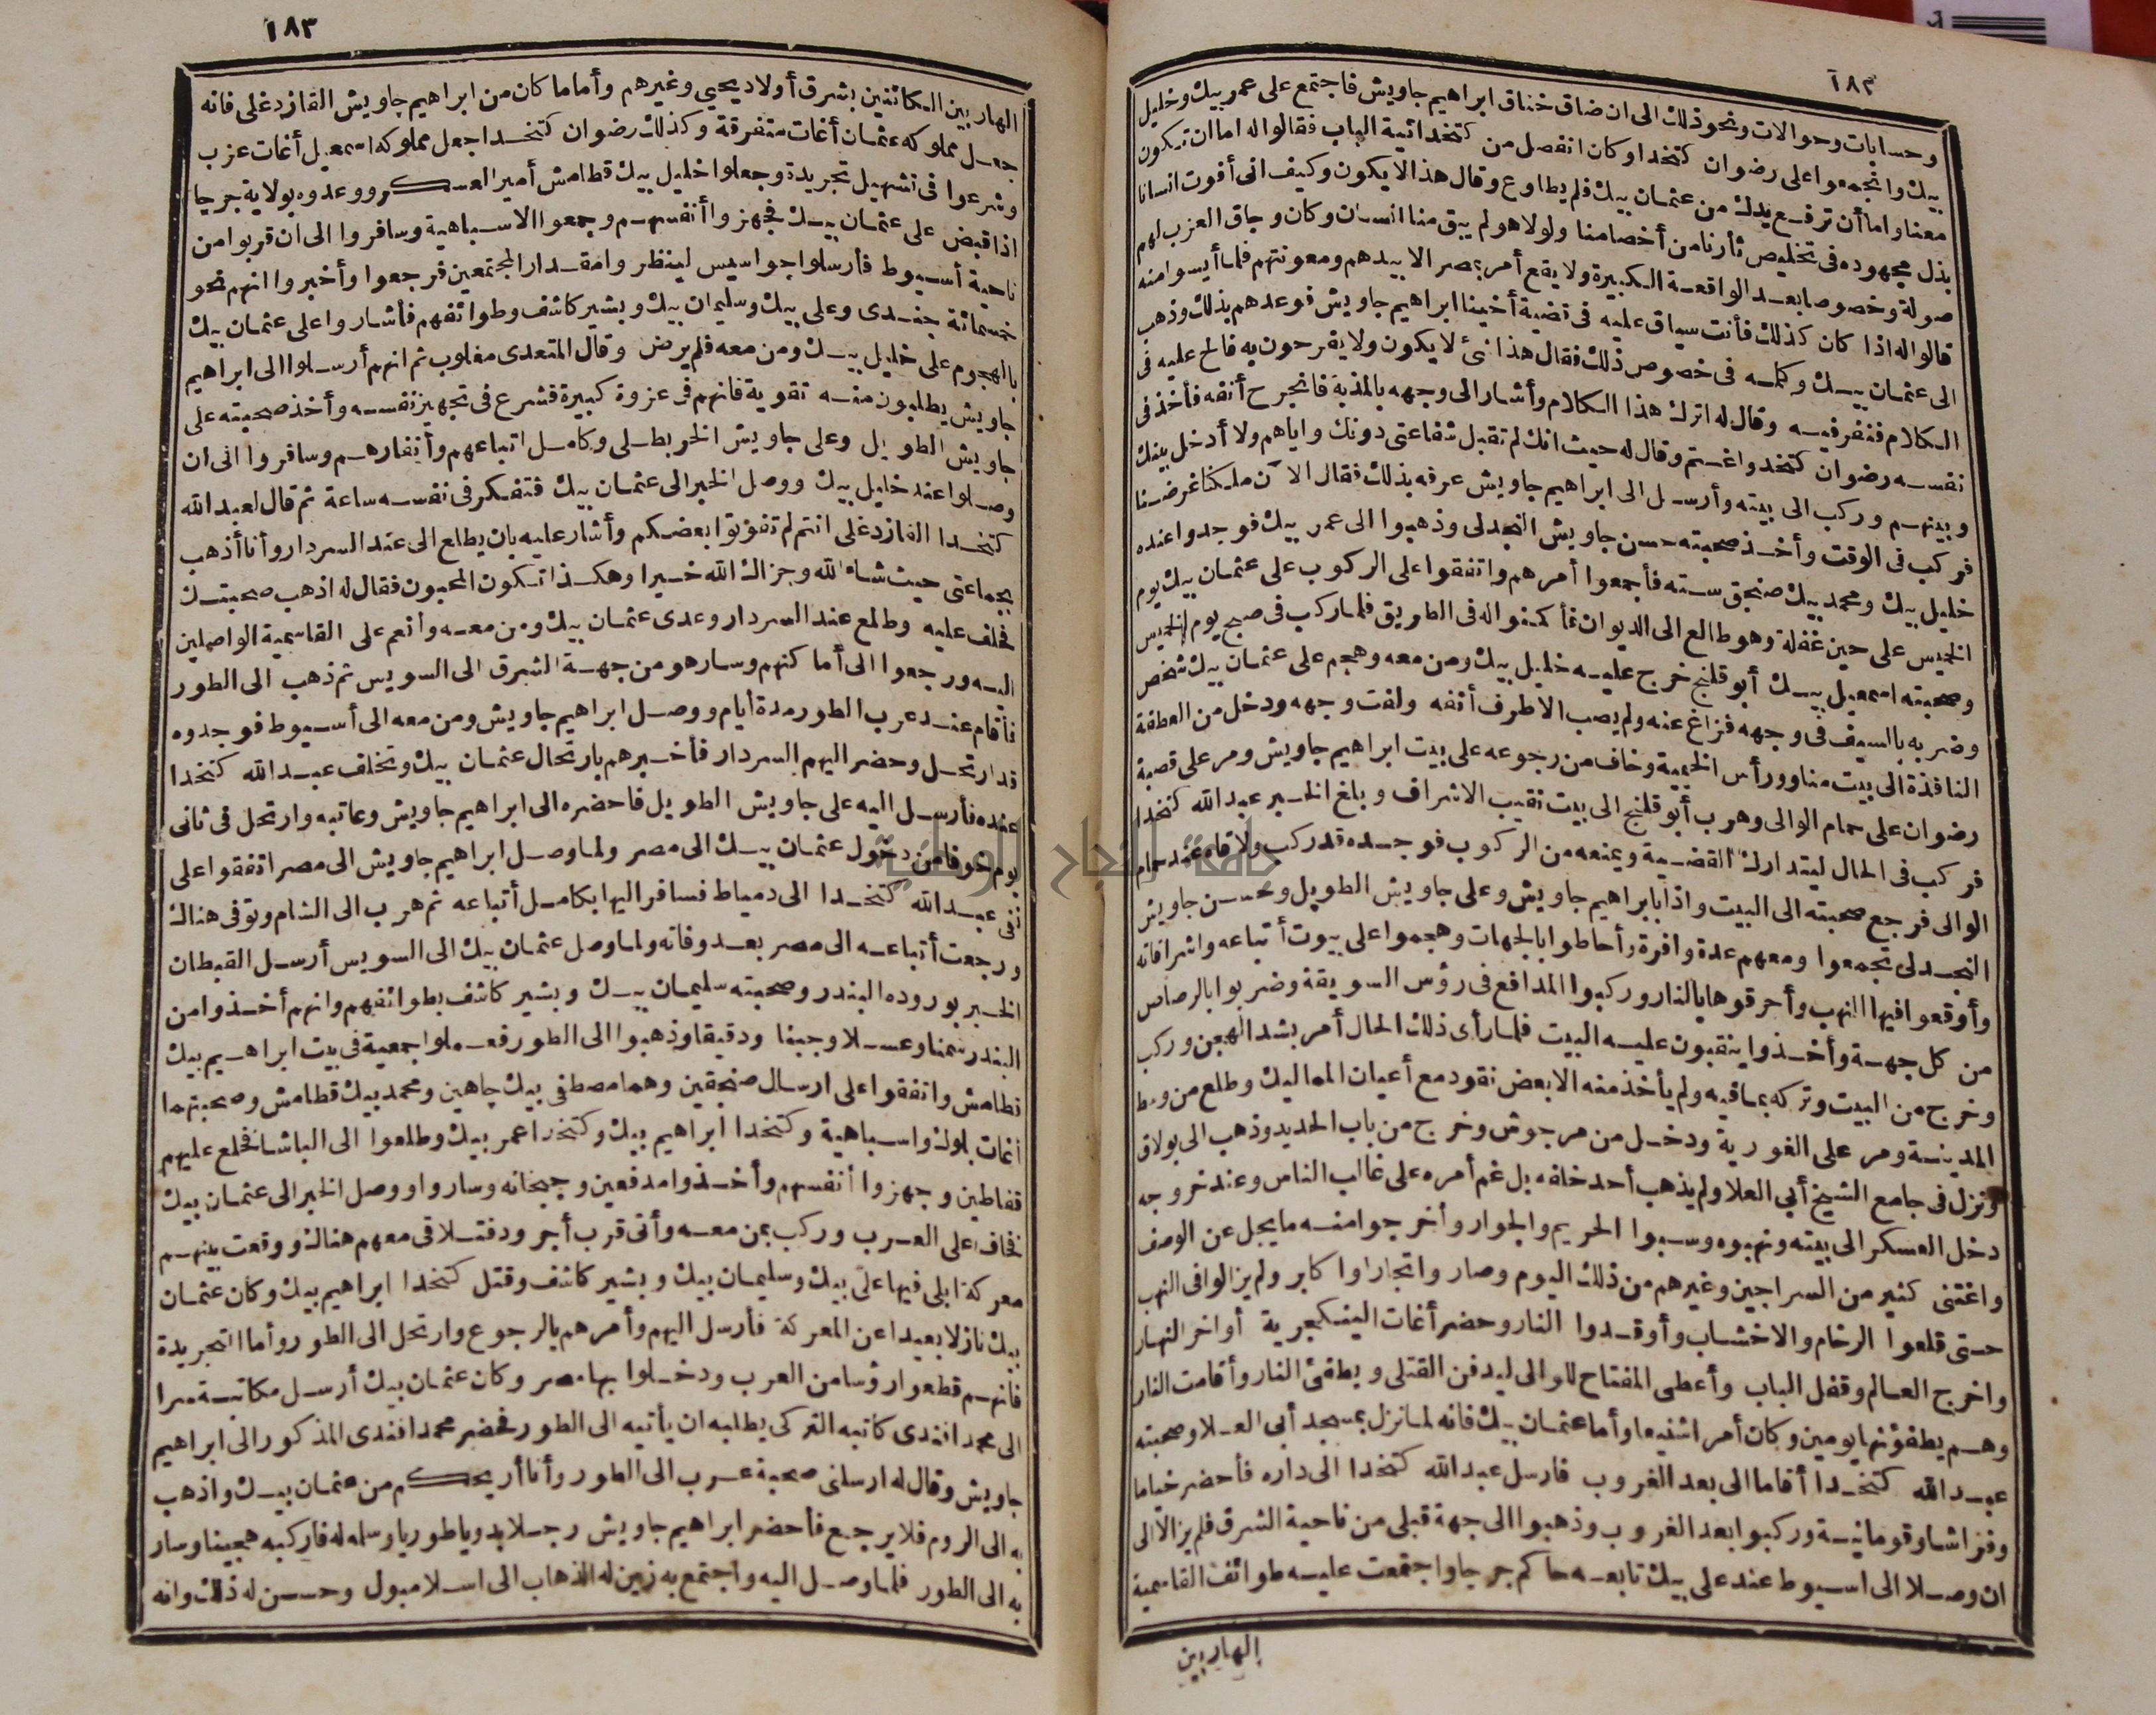 ١٨٢
وحسابات وحوالات ونحو ذلك الى ان ضاق خناق ابراهيم جاويش فاجتمع على عمر بيك وخليل
بيك وانجمعوا على رضوان كتخدا وكان انفصل من كتخدائية الباب فقالوا له اما ان تكون
معنا واما أن ترفع يدك من عثمان بيك فلم يطاوع وقال هذا لا يكون وكيف انى أفوت انسانا
بذل مجهوده فى تخليص ثأرنا من أخصامنا ولولا هو لم يبق منا انسان وكان وجاق العزب لهم
صولة وخصوصا بعد الواقعة الكبيرة ولا يقع أمر بمصر الا بيدهم ومعونتهم فلما أيسوا منه
قالوا له اذا كان كذلك فأنت سياق عليه فى قضية أخينا ابراهيم جاويش فوعدهم بذلك وذهب
الى عثمان بيك وكلمه فى خصوص ذلك فقال هذا شئ لا يكون ولا يفرحون به فالح عليه فى
الكلام فنفر فيه وقال له اترك هذا الكلام وأشار الى وجهه بالمذبة فانجرح أنفه فأخذ فى
نفسه رضوان كتخدا واغتم وقال له حيث انك لم تقبل شفاعتى دونك واياهم ولا أدخل بينك
وبينهم وركب الى بيته وأرسل الى ابراهيم جاويش عرفه بذلك فقال الآن ملكنا غرضنا
فركب فى الوقت وأخذ صحبته حسن جاويش النجدلى وذهبوا الى عمر بيك فوجدوا عنده
خليل بيك ومحمد بيك صنجق سته فأجمعوا أمرهم واتفقوا على الركوب على عثمان بيك يوم
الخميس على حين غفلة وهو طالع الى الديوان فأكمنوا له فى الطريق فلما ركب فى صبح يوم الخميس
وصحبته اسمعيل بيك أبو قلنج خرج عليه خليل بيك ومن معه وهجم على عثمان بيك شخص
وضربه بالسيف فى وجهه فزاغ عنه ولم يصب الا طرف أنفه ولفت وجهه ودخل من العطفة
النافذة الى بيت مناو ورأس الخيمية وخاف من رجوعه على بيت ابراهيم جاويش ومر على قصبة
رضوان على حمام الوالى وهرب أبو قلنج الى بيت نقيب الاشراف وبلغ الخبر عبد الله كتخدا
فركب فى الحال ليتدارك القضية ويمنعه من الركوب فوجده قد ركب ولاقاه عند حمام
الوالى فرجع صحبته الى البيت واذا بابراهيم جاويش وعلى جاويش الطويل وحسن جاويش
النجدلى تجمعوا ومعهم عدة وافرة وأحاطوا بالجهات وهجموا على بيوت أتباعه واشراقاته
وأوقعوا فيها النهب وأحرقوها بالنار وركبوا المدافع فى رؤس السويقة وضربوا بالرصاص
من كل جهة وأخذوا ينقبون عليه البيت فلما رأى ذلك الحال أمر بشد الهجن وركب
وخرج من البيت وتركه بما فيه ولم يأخذ منه الا بعض نقود مع أعيان المماليك وطلع من وسط
المدينة ومر على الغورية ودخل من مرجوش وخرج من باب الحديد وذهب الى بولاق
ونزل فى جامع الشيخ أبى العلا ولم يذهب أحد خلفه بل غم أمره على غالب الناس وعند خروجه
دخل العسكر الى بيته ونهبوه وسبوا الحريم والجوار وأخرجوا منه ما يجل عن الوصف
واغتنى كثير من السراجين وغيرهم من ذلك اليوم وصاروا تجارا وأكابر ولم يزالوا فى النهب
حتى قلعوا الرخام والاخشاب وأوقدوا النار وحضر أغات الينكجرية أواخر النهار
واخرج العالم وقفل الباب وأعطى المفتاح للوالى ليدفن القتلى ويطفئ النار وأقامت النار
وهم يطفؤنها يومين وكان أمرا شنيعا وأما عثمان بيك فانه لما نزل بمسجد أبى العلا وصحبته
عبد الله كتخدا أقاما الى بعد الغروب فارسل عبد الله كتخدا الى داره فأحضر خياما
وفراشا وقومانية وركبوا بعد الغروب وذهبوا الى جهة قبلى من ناحية الشرق فلم يزالا الى
ان وصلا الى اسيوط عند على بيك تابعه حاكم جرجا واجتمعت عليه طوائف القاسمية
الهاربين
١٨٣
الهاربين الكائنين بشرق أولاد يحيى وغيرهم وأما ما كان من ابراهيم جاويش القازدغلى فانه
جعل مملوكه عثمان أغات متفرقة وكذلك رضوان كتخدا جعل مملوكه اسمعيل أغات عزب
وشرعوا فى تشهيل تجريدة وجعلوا خليل بيك قطامش أمير العسكر ووعدوه بولاية جرجا
اذا قبض على عثمان بيك فجهزوا أنفسهم وجمعوا الاسباهية وسافروا الى ان قربوا من
ناحية أسيوط فأرسلوا جواسيس لينظروا مقدار المجتمعين فرجعوا وأخبروا انهم نحو
خمسمائة جندى وعلى بيك وسليمان بيك وبشير كاشف وطوائفهم فأشاروا على عثمان بيك
بالهجوم على خليل بيك ومن معه فلم يرض وقال المتعدى مغلوب ثم انهم أرسلوا الى ابراهيم
جاويش يطلبون منه تقوية فانهم فى عزوة كبيرة فشرع فى تجهيز نفسه وأخذ صحبته على
جاويش الطويل وعلى جاويش الخربطلى وكامل اتباعهم وأنفارهم وسافروا الى ان
وصلوا عند خليل بيك ووصل الخبر الى عثمان بيك فتفكر فى نفسه ساعة ثم قال لعبد الله
كتخدا القازدغلى انتم لم تفوتوا بعضكم وأشار عليه بان يطلع الى عند السردار وأنا أذهب
بجماعتى حيث شاء الله وجزاك الله خيرا وهكذا تكون المحبون فقال له اذهب صحبتك
فحلف عليه وطلع عند السردار وعدى عثمان بيك ومن معه وانعم على القاسمية الواصلين
اليه ورجعوا الى أماكنهم وسار هو من جهة الشرق الى السويس ثم ذهب الى الطور
فأقام عند عرب الطور مدة أيام ووصل ابراهيم جاويش ومن معه الى أسيوط فوجدوه
قد ارتحل وحضر اليهم السردار فأخبرهم بارتحال عثمان بيك وتخلف عبد الله كتخدا
عنده فأرسل اليه على جاويش الطويل فاحضره الى ابراهيم جاويش وعاتبه وارتحل فى ثانى
يوم خوفا من دخول عثمان بيك الى مصر ولما وصل ابراهيم جاويش الى مصر اتفقوا على
نفى عبد الله كتخدا الى دمياط فسافر اليها بكامل أتباعه ثم هرب الى الشام وتوفى هناك
ورجعت أتباعه الى مصر بعد وفاته ولما وصل عثمان بيك الى السويس أرسل القبطان
الخبر بوروده البندر وصحبته سليمان بيك وبشير كاشف بطوائفهم وانهم أخذوا من
البندر سمنا وعسلا وجبنا ودقيقا وذهبوا الى الطور فعملوا جمعية فى بيت ابراهيم بيك
قطامش واتفقوا على ارسال صنجقين وهما مصطفى بيك چاهين ومحمد بيك قطامش وصحبتهما
أغات بلوك واسباهية وكتخدا ابراهيم بيك وكتخدا عمر بيك وطلعوا الى الباشا فخلع عليهم
قفاطين وجهزوا أنفسهم وأخذوا مدفعين وجبخانه وساروا ووصل الخبر الى عثمان بيك
فخاف على العرب وركب بمن معه وأتى قرب أجرود فتلاقى معهم هناك ووقعت بينهم
معركة ابلى فيها على بيك وسليمان بيك وبشير كاشف وقتل كتخدا ابراهيم بيك وكان عثمان
بيك نازلا بعيدا عن المعركة فأرسل اليهم وأمرهم بالرجوع وارتحل الى الطور وأما التجريدة
فانهم قطعوا رؤسا من العرب ودخلوا بها مصر وكان عثمان بيك أرسل مكاتبة سرا
الى محمد افندى كاتبه التركى يطلبه ان يأتيه الى الطور فحضر محمد افندى المذكور الى ابراهيم
جاويش وقال له ارسلنى صحبة عرب الى الطور وأنا أريحكم من عثمان بيك واذهب
به الى الروم فلا يرجع فأحضر ابراهيم جاويش رجلا بدويا طوريا وسلمه له فاركبه هجينا وسار
به الى الطور فلما وصل اليه واجتمع به زين له الذهاب الى اسلامبول وحسن له ذلك وانه
جامعة النجاح الوطنية